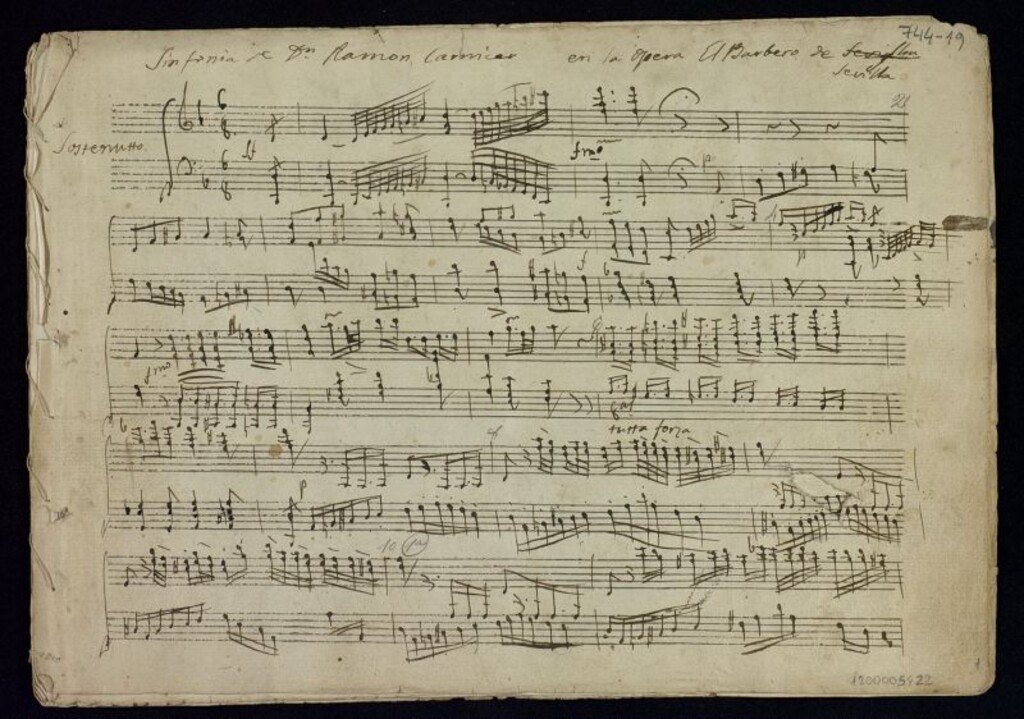 744-49
Sinfonia de Dn Ramon Carnicer en la opera El Barbero de Sevilla
Sevilla
6
8
Sostenutto.
ff
fmo
p
6
8
f
p
fmo
tutta forza
p
10
1200005422
1